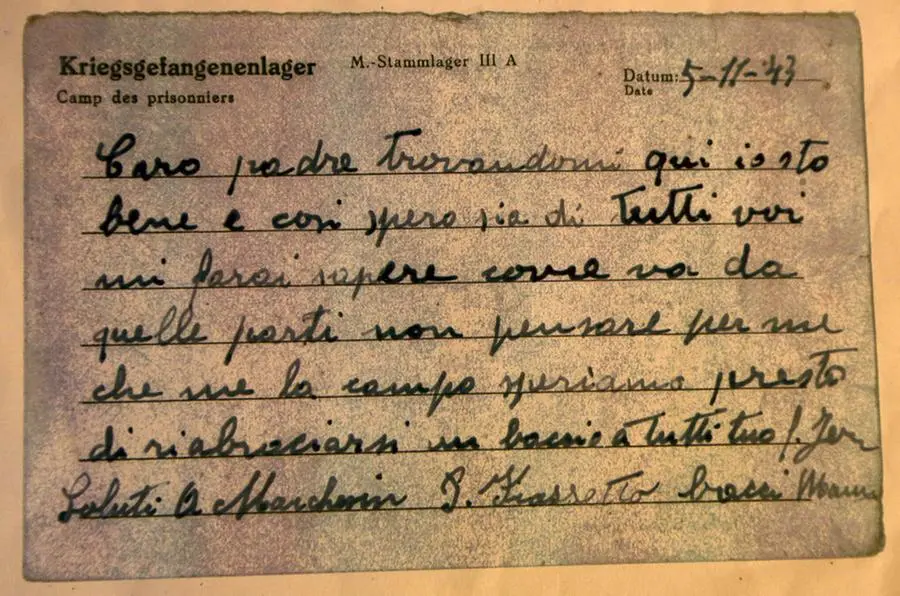 Kriegsgefangenenlager M.-Stammlager III A
Camp des prisonniers
Datum: 5-11-43
Date
Caro padre trovandomi qui io sto
bene e cosi spero sia di tutti voi
mi farai sapere come va da
quelle parti non pensare per me
che me la campo speriamo presto
di riabraciarsi un bacio a tutti tuo
Saluti A bacci